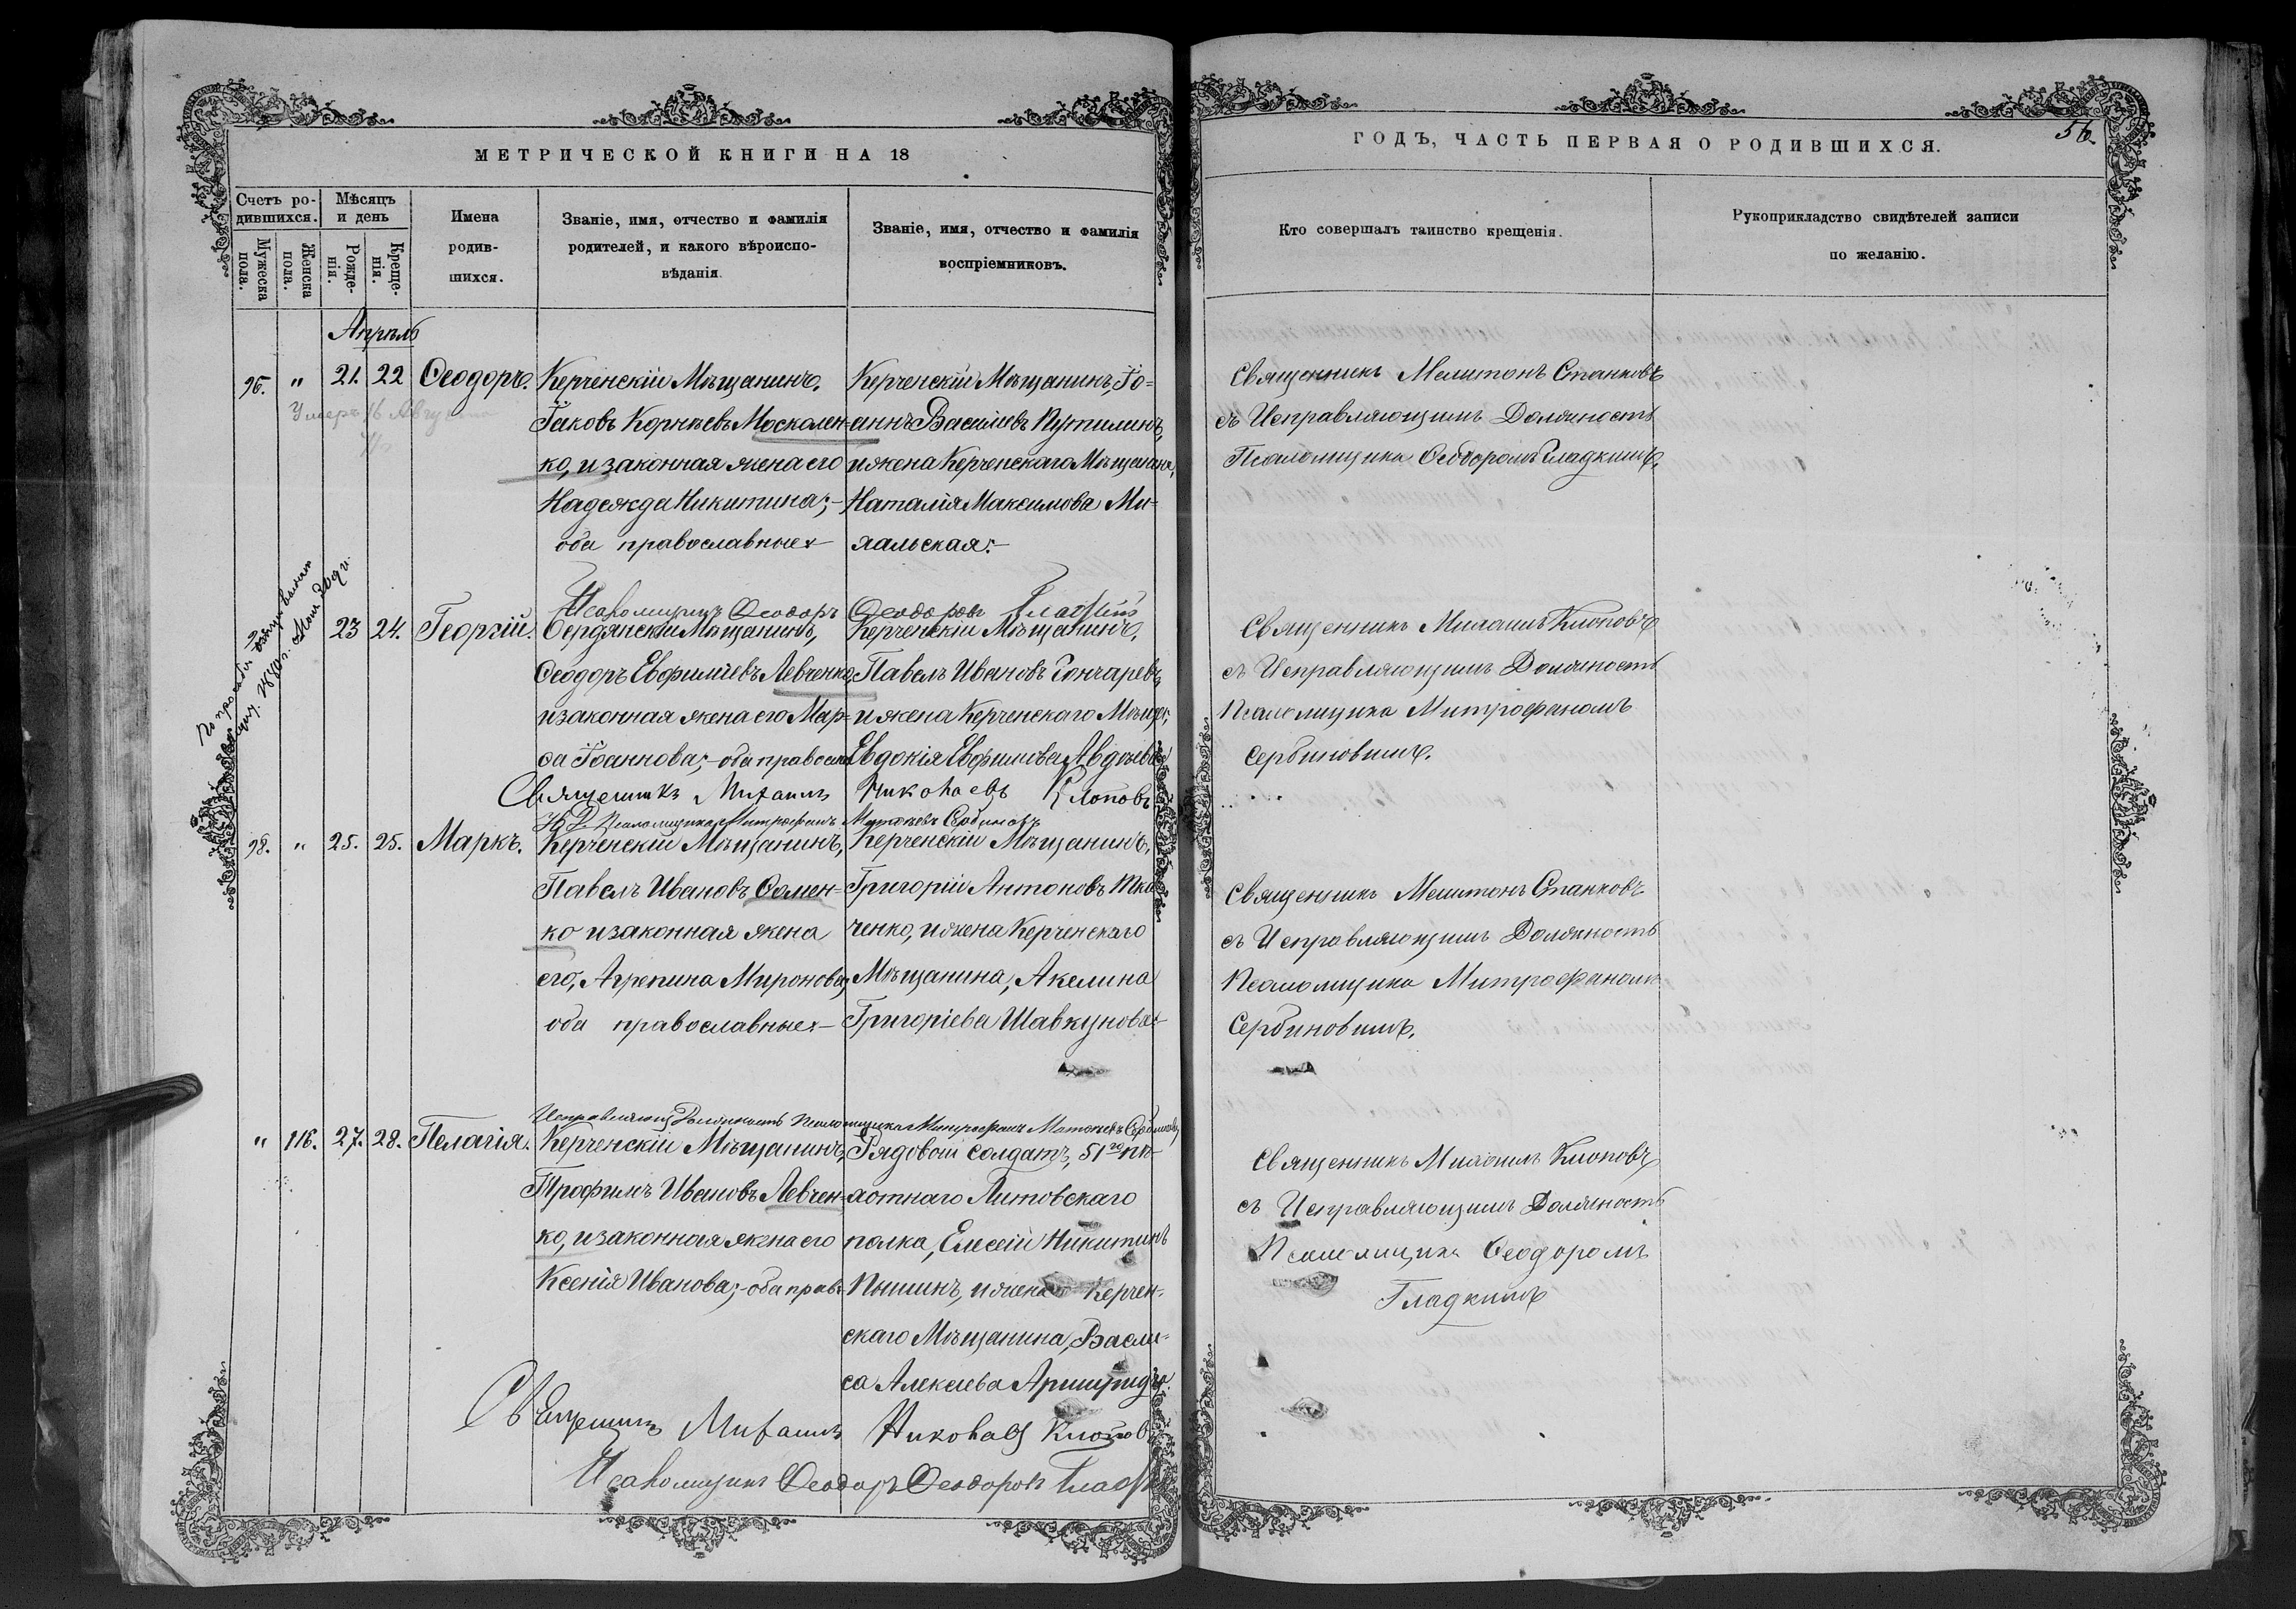 МЕТРИЧЕСКОЙ КНИГИ НА 18
Счетъ ро-
дившихся.
Мѣсяцъ
и день
Мужеска
пола.
Женска
пола.
Рожде-
нія.
Креще-
нія.
Имена
родив-
шихся.
Званіе, имя, отчество и фамилія
родителей, и какого вѣроиспо-
вѣданія.
Званіе, имя, отчество и фамилія
воспріемниковъ.
Апрѣль
96. " 21. 22 Ѳеодоръ.
Умеръ 16 Августа
Керченскій Мѣщанинъ,
Іаковъ Корнѣевъ Москален-
ко, и законная жена его
Надежда Никитина; -
оба православные
Керченскій Мѣщанинъ, Іо-
аннъ Васильевъ Путилинъ,
и жена Керченскаго Мѣщанина,
Наталія Максимова Ми-
хальская:-
Псаломщикъ Ѳеодоръ Ѳеодоровъ Гладкій
По просьбѣ
1880 г. Мая 20 дн.
23 24. Георгій.
Бердянскій Мѣщанинъ,
Ѳеодоръ Евфиміевъ Левченко,
и законная жена его Мар-
ѳа Іоаннова; - оба правосл
Керченскій Мѣщанинъ,
Павелъ Ивановъ Гончаревъ,
и жена Керченскаго Мѣщ.,
Евдокія Евфимова Авдѣева
Священникъ Михаилъ Николаевъ Клоповъ
И. Д. Псаломщика Митрофанъ Матѳеевъ Сербиновъ
98. " 25. 25. Маркъ.
Керченскій Мѣщанинъ,
Павелъ Ивановъ Ѳомен-
ко и законная жена
его, Агрепина Миронова,
оба православные:-
Керченскій Мѣщанинъ,
Григорій Антоновъ Тка
ченко, и жена Керченскаго
Мѣщанина, Акелина
Григоріева Шавкунова:-
Исправляющ. Должность Псаломщика Митрофанъ Матѳеевъ Сербиновъ
" 116. 27. 28. Пелагія.
Керченскій Мѣщанинъ,
Трофимъ Ивановъ Левчен-
ко, и законная жена его
Ксенія Иванова; - оба прав.
Рядовой солдатъ, 51го пѣ-
хотнаго Литовскаго
полка, Елисей Никитинъ
Пышинъ, и жена Керчен-
скаго Мѣщанина, Васили-
са Алексѣева
Священникъ Михаилъ Николаевъ Клоповъ
Псаломщикъ Ѳеодоръ Ѳеодоровъ Гладкій
ГОДЪ, ЧАСТЬ ПЕРВАЯ О РОДИВШИХСЯ.
56.
Кто совершалъ таинство крещенія.
Рукоприкладство свидѣтелей записи
по желанію.
Священникъ Мелитонъ Станковъ
съ Исправляющимъ Должность
Псаломщика Ѳеодоромъ Гладкимъ.
Священникъ Михаилъ Клоповъ
съ Исправляющимъ Должность
Псаломщика Митрофаномъ
Сербиновымъ.
Священникъ Мелитонъ Станковъ
съ Исправляющимъ Должность
Псаломщика Митрофаномъ
Сербиновымъ.
Священникъ Михаилъ Клоповъ
съ Исправляющимъ Должность
Псаломщика Ѳеодоромъ
Гладкимъ